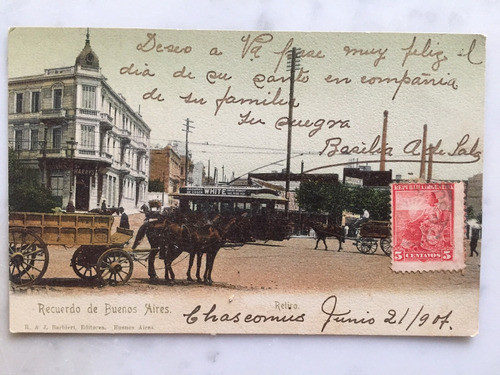 Deseo a Va pase muy feliz el
día de su santo en compañia
de su familia
Su suegra
Basilia A. de
WHITE
REPUBLICA ARGENTINA
5 CENTAVOS 5
Recuerdo de Buenos Aires.
Retiro.
R. & J. Barbieri, Editores. Buenos Aires
Chascomus Junio 21/907.